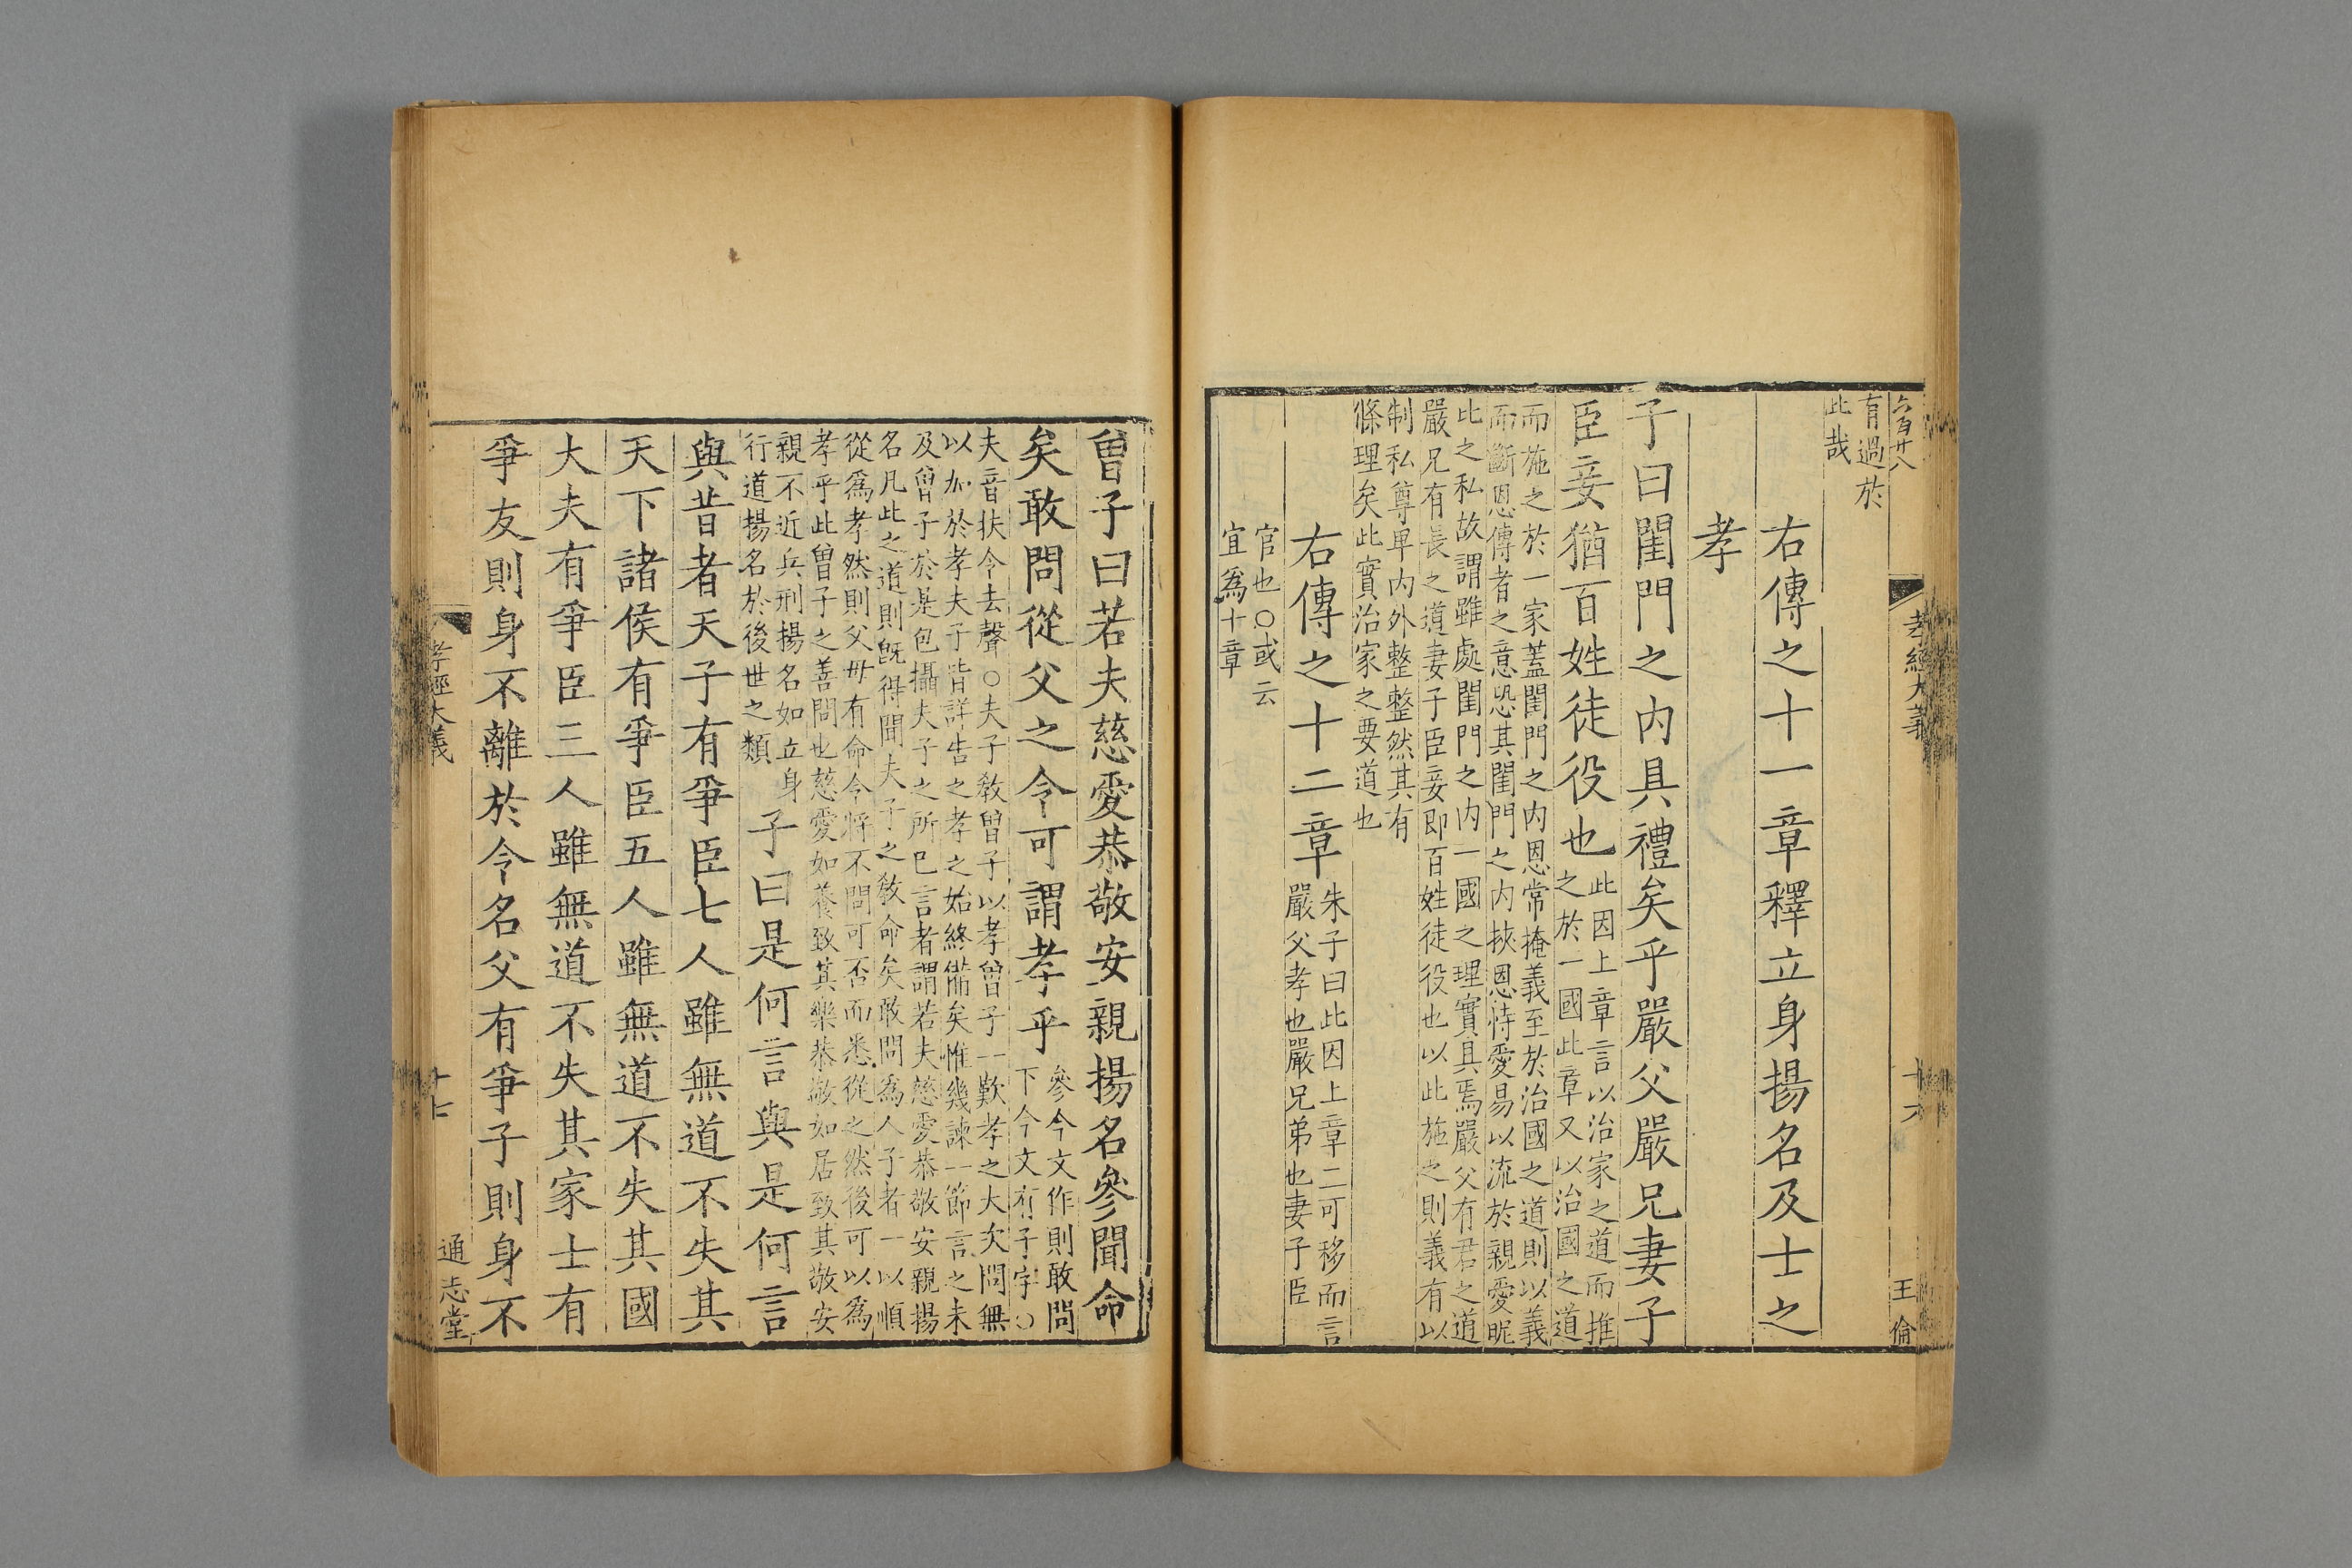 六百廿八
孝經大義
十六
王倫
有過於
此哉
右傳之十一章釋立身揚名及士之
孝
子曰閨門之內具禮矣乎嚴父嚴兄妻子
臣妾猶百姓徒役也
此因上章言以治家之道而推
之於一國此章又以治國之道
而施之於一家蓋閨門之内恩常掩義至於治國之道則以義
而斷恩傳者之意恐其閨門之内挾恩恃愛易以流於親愛昵
此之私故謂雖處閨門之内一國之理實具焉嚴父有君之道
嚴兄有長之道妻子臣妾即百姓徒役也以此施之則義有以
制私尊卑内外整整然其有
條理矣此實治家之要道也
右傳之十二章
朱子曰此因上章二可移而言
嚴父孝也嚴兄弟也妻子臣
官也○或云
宜爲十章
曾子曰若夫慈愛恭敬安親揚名參聞命
矣敢問從父之令可謂孝乎
參今文作則敢問
下今文有子字○
夫音扶令去聲○夫子敎曾子以孝曾子一歎孝之大次問無
以加於孝夫子皆詳告之孝之始終備矣惟幾諫一節言之未
及曾子於是包攝夫子之所已言者謂若夫慈愛恭敬安親揚
名凡此之道則旣得聞夫子之敎命矣敢問爲人子者一以順
從爲孝然則父母有命令將不問可否而悉從之然後可以爲
孝乎此曾子之善問也慈愛如養致其樂恭敬如居致其敬安
親不近兵刑揚名如立身
行道揚名於後世之類
子曰是何言與是何言
與昔者天子有爭臣七人雖無道不失其
天下諸侯有爭臣五人雖無道不失其國
大夫有爭臣三人雖無道不失其家士有
爭友則身不離於令名父有爭子則身不
孝經大義
十七
通志堂